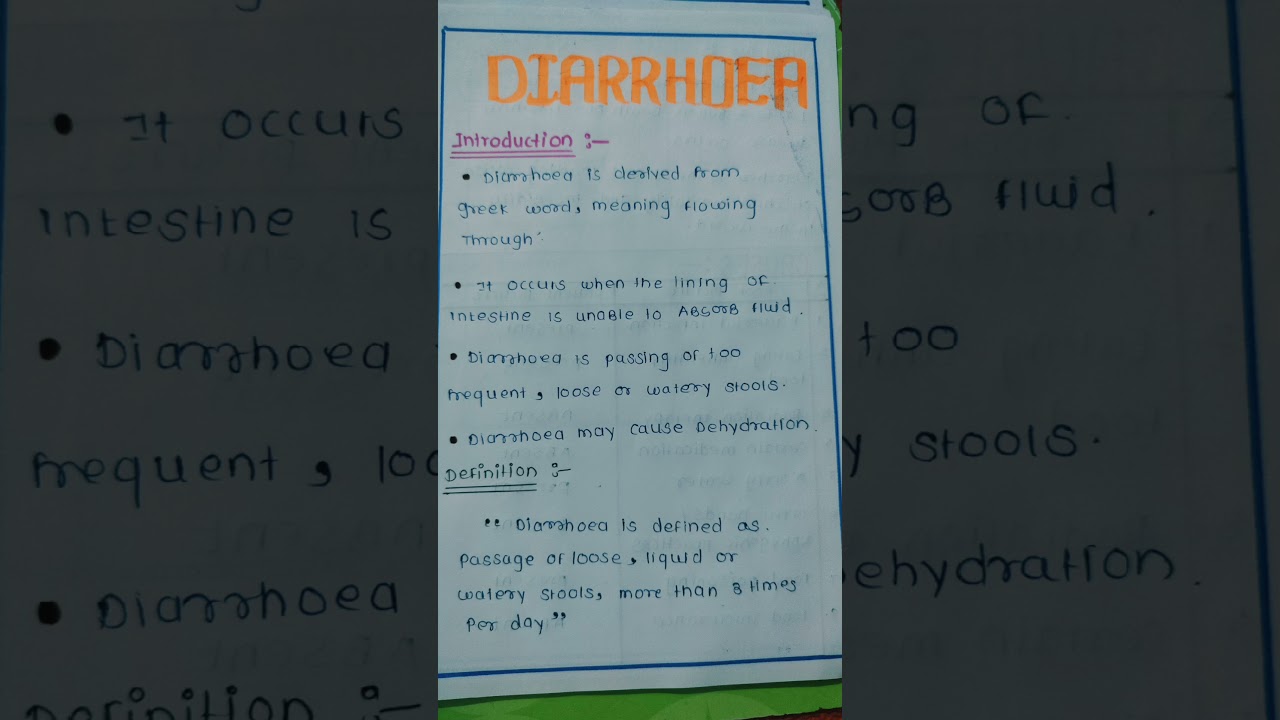 DIARRHOEA
Introduction :-
• Diarrhoea is derived from
greek word, meaning flowing
Through'
• It occurs when the lining of
intestine is unable to ABSORB fluid.
• Diarrhoea is passing of too
frequent, loose or watery stools.
• Diarrhoea may cause Dehydration.
Definition :-
" Diarrhoea is defined as.
passage of loose, liquid or
watery stools, more than 3 times
per day"